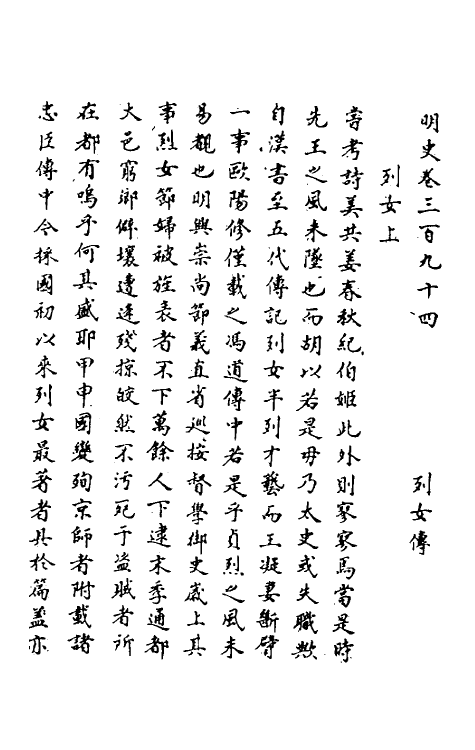 明史卷三百九十四　列女傳
列女上
嘗考詩美共姜春秋紀伯姬此外則寥寥焉當是時
先王之風未墜也而胡以若是毋乃太史或失職歟
自漢書至五代傳記列女半列才藝而王凝妻斷臂
一事歐陽修僅載之馮道傳中若是乎貞烈之風未
易覩也明興崇尚節義直省巡按督學御史歲上其
事烈女節婦被旌表者不下萬餘人下逮末季通都
大邑窮鄉僻壤遭逢殘掠皎然不汚死于盜賊者所
在都有嗚乎何其盛耶甲申國變殉京師者附載諸
忠臣傳中今採國初以來列女最著者具於篇蓋亦